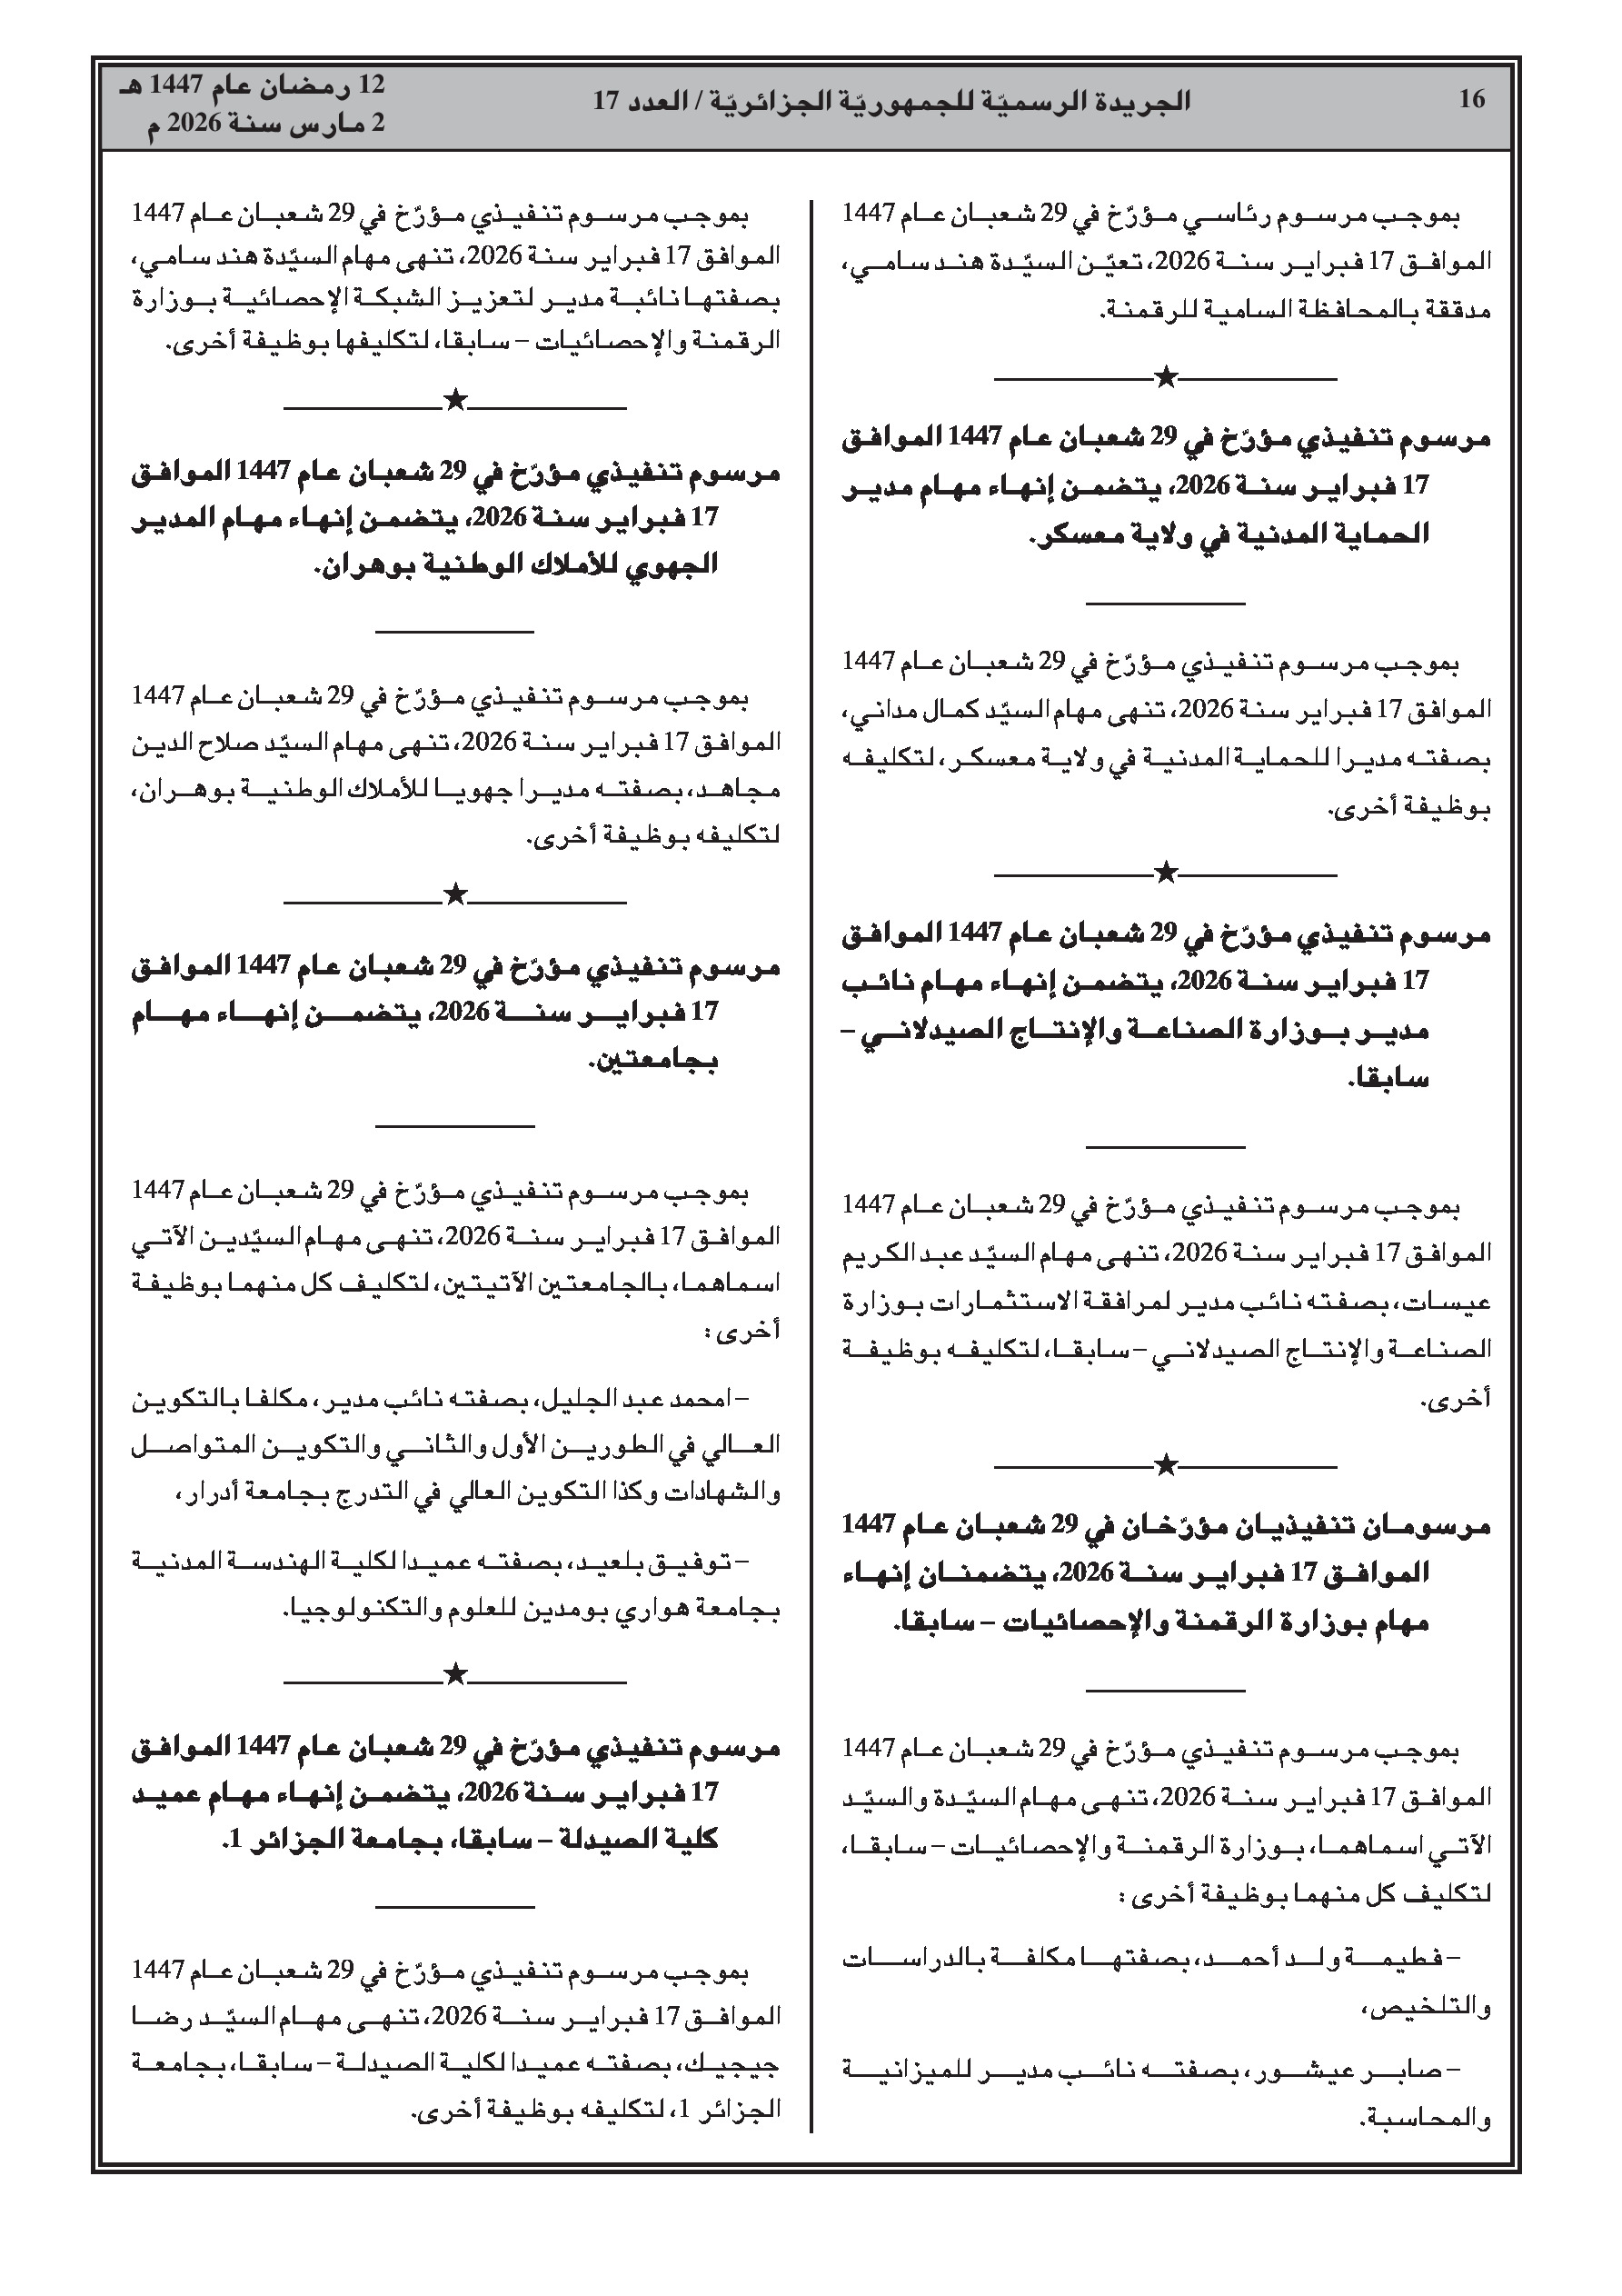 16
الجريدة الرسميّة للجمهوريّة الجزائريّة / العدد 17
12 رمضان عام 1447 هـ
2 مارس سنة 2026 م
بموجب مرسوم رئاسي مؤرّخ في 29 شعبان عام 1447
الموافق 17 فبراير سنة 2026، تعيّن السيّدة هند سامي،
مدققة بالمحافظة السامية للرقمنة.
مرسوم تنفيذي مؤرّخ في 29 شعبان عام 1447 الموافق
17 فبراير سنة 2026، يتضمن إنهاء مهام مدير
الحماية المدنية في ولاية معسكر.
بموجب مرسوم تنفيذي مؤرّخ في 29 شعبان عام 1447
الموافق 17 فبراير سنة 2026، تنهى مهام السيّد كمال مداني،
بصفته مديرا للحماية المدنية في ولاية معسكر، لتكليفه
بوظيفة أخرى.
مرسوم تنفيذي مؤرّخ في 29 شعبان عام 1447 الموافق
17 فبراير سنة 2026، يتضمن إنهاء مهام نائب
مدير بوزارة الصناعة والإنتاج الصيدلاني –
سابقا.
بموجب مرسوم تنفيذي مؤرّخ في 29 شعبان عام 1447
الموافق 17 فبراير سنة 2026، تنهى مهام السيّد عبد الكريم
عيسات، بصفته نائب مدير لمرافقة الاستثمارات بوزارة
الصناعة والإنتاج الصيدلاني – سابقا، لتكليفه بوظيفة
أخرى.
مرسومان تنفيذيان مؤرّخان في 29 شعبان عام 1447
الموافق 17 فبراير سنة 2026، يتضمنان إنهاء
مهام بوزارة الرقمنة والإحصائيات – سابقا.
بموجب مرسوم تنفيذي مؤرّخ في 29 شعبان عام 1447
الموافق 17 فبراير سنة 2026، تنهى مهام السيّدة والسيّد
الآتي اسماهما، بوزارة الرقمنة والإحصائيات – سابقا،
لتكليف كل منهما بوظيفة أخرى :
– فطيمة ولد أحمد، بصفتها مكلفة بالدراسات
والتلخيص،
– صابر عيشور، بصفته نائب مدير للميزانية
والمحاسبة.
بموجب مرسوم تنفيذي مؤرّخ في 29 شعبان عام 1447
الموافق 17 فبراير سنة 2026، تنهى مهام السيّدة هند سامي،
بصفتها نائبة مدير لتعزيز الشبكة الإحصائية بوزارة
الرقمنة والإحصائيات – سابقا، لتكليفها بوظيفة أخرى.
مرسوم تنفيذي مؤرّخ في 29 شعبان عام 1447 الموافق
17 فبراير سنة 2026، يتضمن إنهاء مهام المدير
الجهوي للأملاك الوطنية بوهران.
بموجب مرسوم تنفيذي مؤرّخ في 29 شعبان عام 1447
الموافق 17 فبراير سنة 2026، تنهى مهام السيّد صلاح الدين
مجاهد، بصفته مديرا جهويا للأملاك الوطنية بوهران،
لتكليفه بوظيفة أخرى.
مرسوم تنفيذي مؤرّخ في 29 شعبان عام 1447 الموافق
17 فبراير سنة 2026، يتضمن إنهاء مهام
بجامعتين.
بموجب مرسوم تنفيذي مؤرّخ في 29 شعبان عام 1447
الموافق 17 فبراير سنة 2026، تنهى مهام السيّدين الآتي
اسماهما، بالجامعتين الآتيتين، لتكليف كل منهما بوظيفة
أخرى :
– امحمد عبد الجليل، بصفته نائب مدير، مكلفا بالتكوين
العالي في الطورين الأول والثاني والتكوين المتواصل
والشهادات وكذا التكوين العالي في التدرج بجامعة أدرار،
– توفيق بلعيد، بصفته عميدا لكلية الهندسة المدنية
بجامعة هواري بومدين للعلوم والتكنولوجيا.
مرسوم تنفيذي مؤرّخ في 29 شعبان عام 1447 الموافق
17 فبراير سنة 2026، يتضمن إنهاء مهام عميد
كلية الصيدلة – سابقا، بجامعة الجزائر 1.
بموجب مرسوم تنفيذي مؤرّخ في 29 شعبان عام 1447
الموافق 17 فبراير سنة 2026، تنهى مهام السيّد رضا
جيجيك، بصفته عميدا لكلية الصيدلة – سابقا، بجامعة
الجزائر 1، لتكليفه بوظيفة أخرى.